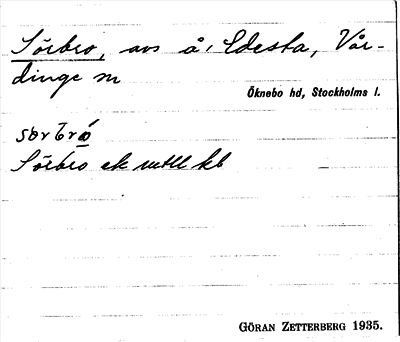 Sörbro, avs å Edesta, Vår-
dinge sn
Öknebo hd, Stockholms l.
Sörbro ek
GÖRAN ZETTERBERG 1935.